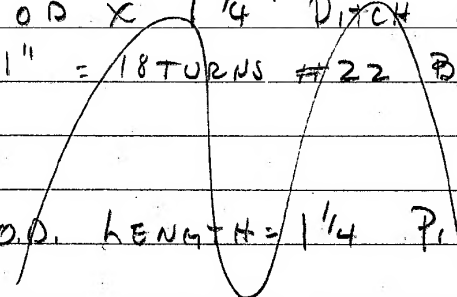 OD X 1/4 PITCH
1" = 18 TURNS #22 B
O.D. LENGTH = 1 1/4 P.